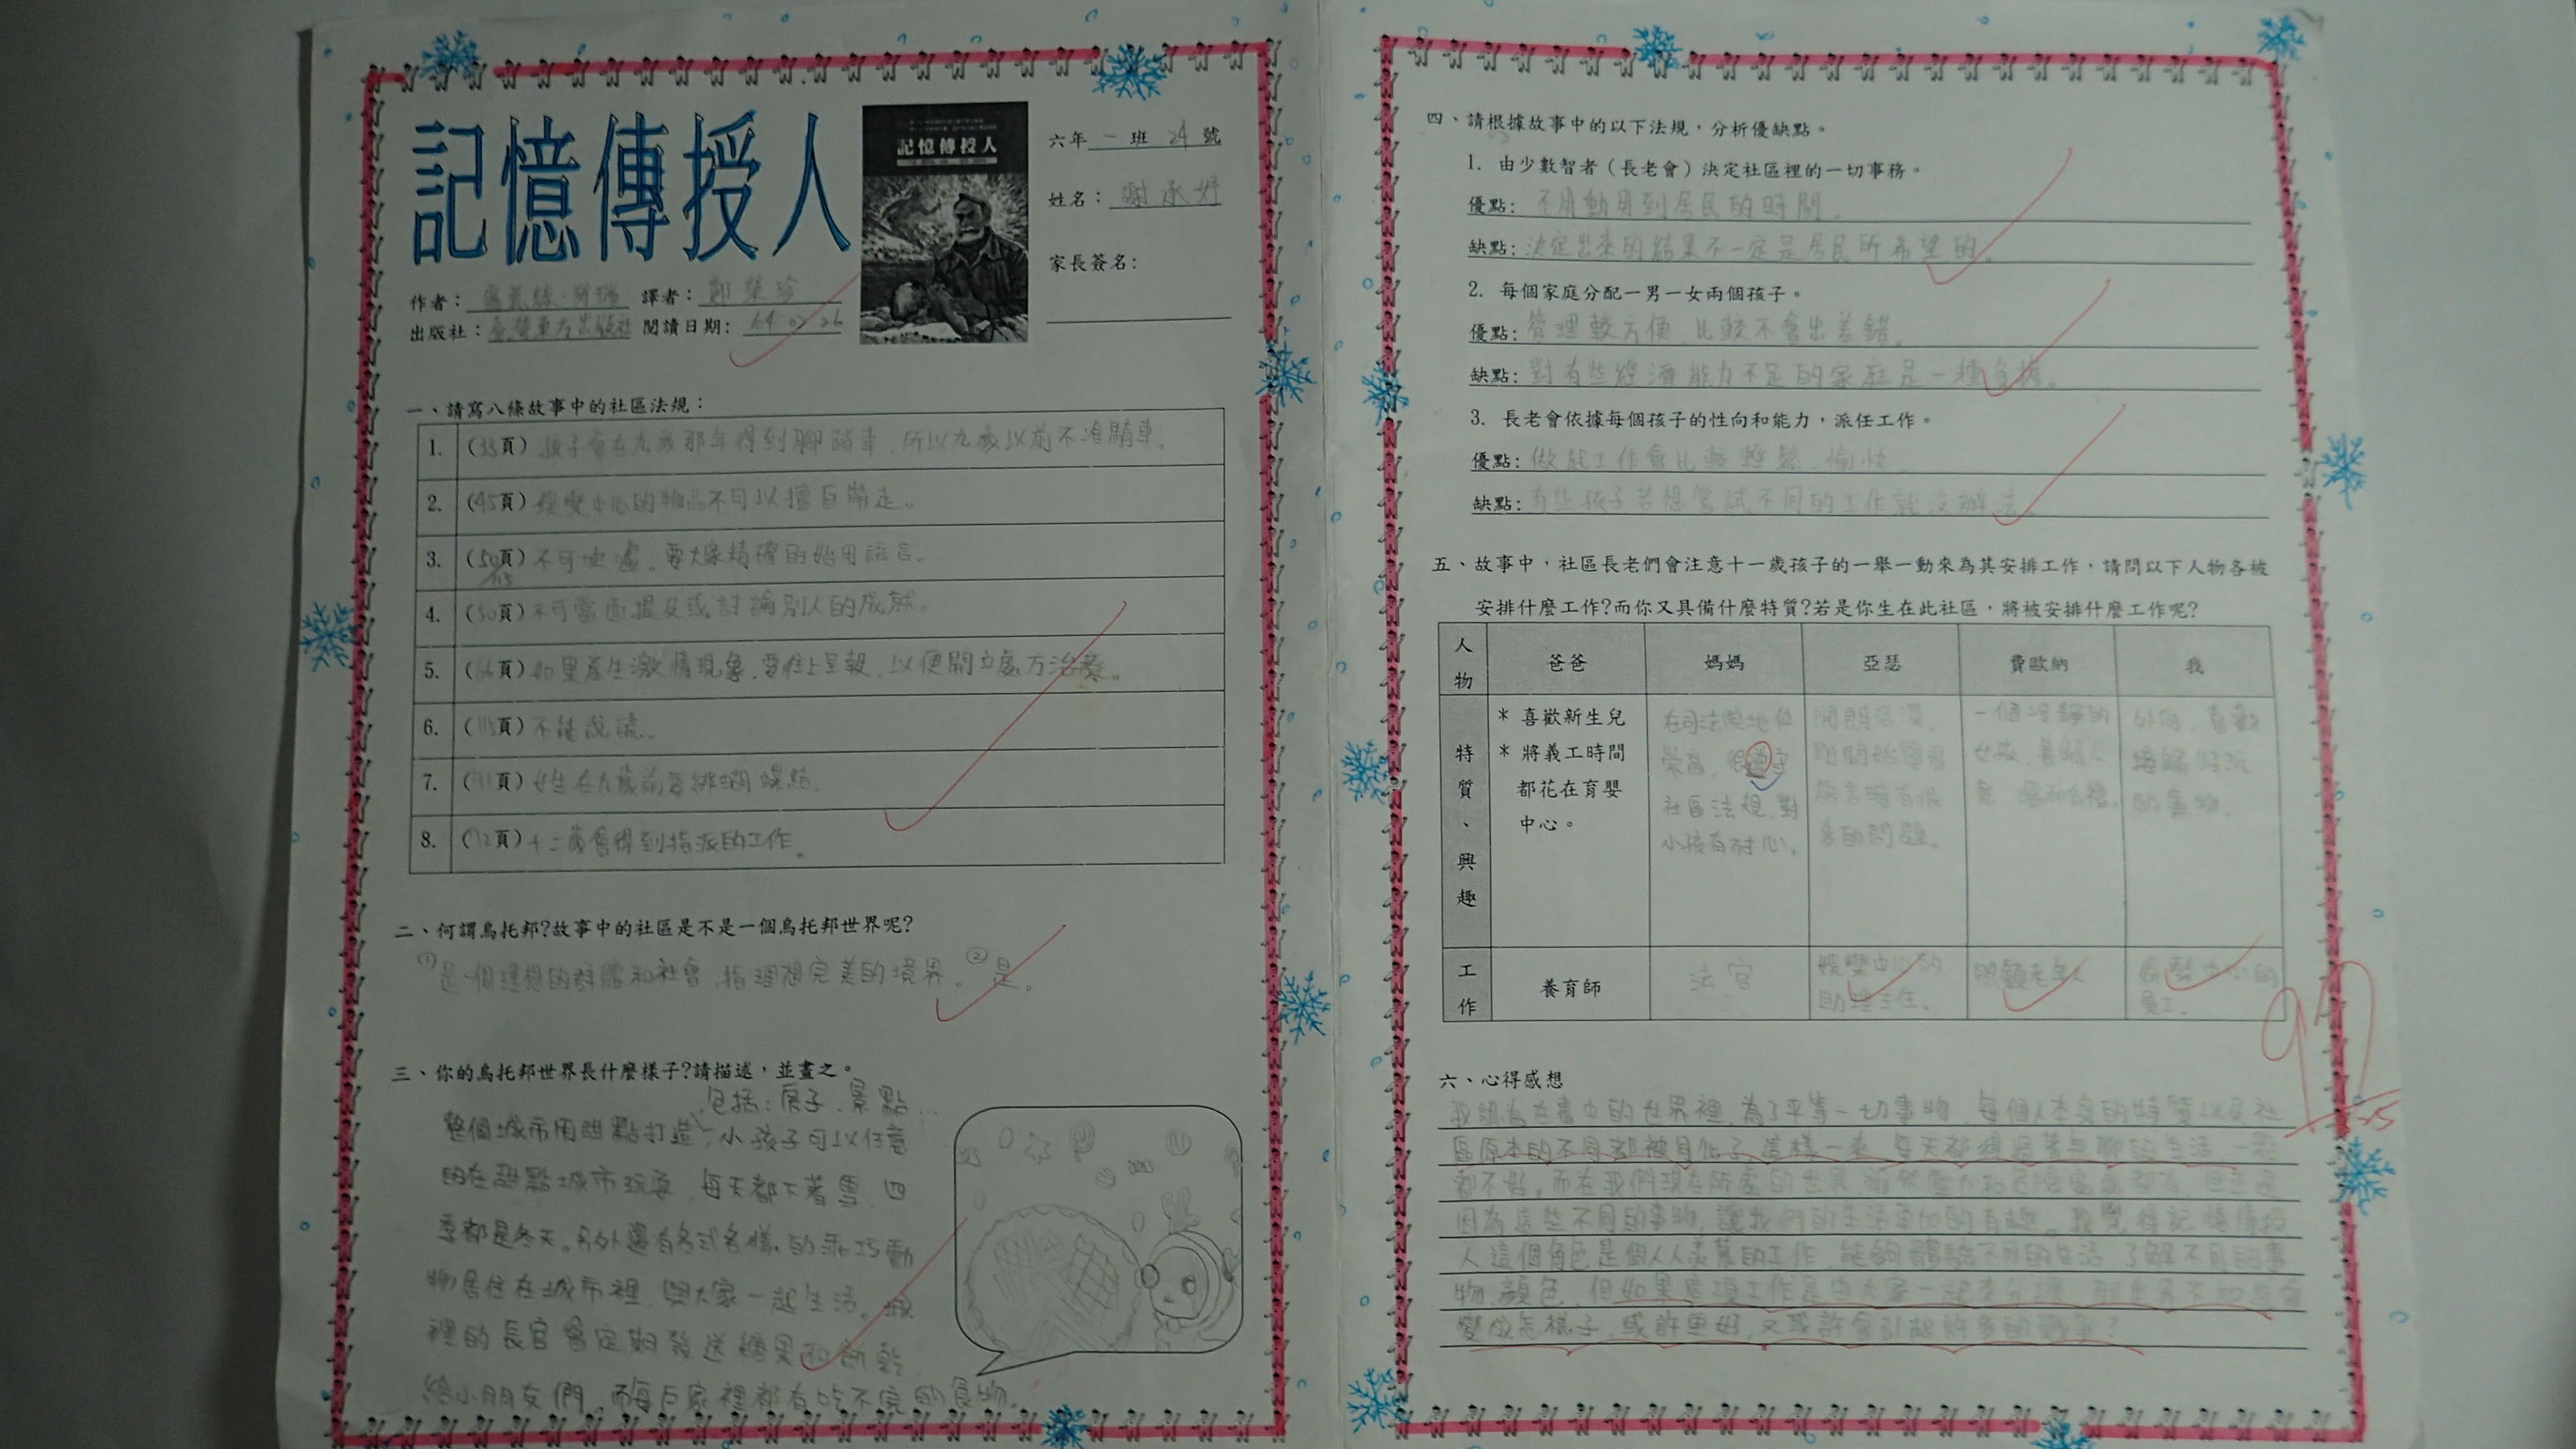 記憶傳授人
記憶傳授人
六年一班24號
姓名：謝承妤
家長簽名：
作者：露薏絲·   譯者：鄭榮珍
出版社：臺灣東方出版社 閱讀日期：
一、請寫八條故事中的社區法規：
1. (33頁) 孩子會在九歲那年得到腳踏車，所以九歲以前不准騎車。
2. (45頁) 娛樂中心的物品不可以擅自帶走。
3. (50頁) 不可吹噓。要大家精確的始用語言。
115
4. (50頁) 不可當面提及或討論別人的成就。
5. (66頁) 如果產生激情現象，要往上呈報，以便開立處方治療。
6. (115頁) 不能說謊。
7. 女生在九歲前要綁蝴蝶結。
8. 十二歲會得到指派的工作。
二、何謂烏托邦?故事中的社區是不是一個烏托邦世界呢?
①是一個理想的群體和社會，指理想完美的境界。②是。
三、你的烏托邦世界長什麼樣子?請描述，並畫之。
包括：房子、景點…
整個城市用甜點打造，小孩子可以任意
的在甜點城市玩耍，每天都下著雪，四
季都是冬天。另外還有各式各樣的乖巧動
物居住在城市裡，與大家一起生活。城
裡的長官會定期發送糖果和餅乾
給小朋友們，而每戶家裡都有吃不完的食物。
四、請根據故事中的以下法規，分析優缺點。
1. 由少數智者（長老會）決定社區裡的一切事務。
優點：不用動用到居民的時間。
缺點：決定出來的結果不一定是居民所希望的。
2. 每個家庭分配一男一女兩個孩子。
優點：管理較方便，比較不會出差錯。
缺點：對有些經濟能力不足的家庭是一種負擔。
3. 長老會依據每個孩子的性向和能力，派任工作。
優點：做起工作會比較輕鬆、愉快。
缺點：有些孩子若想嘗試不同的工作就沒辦法。
五、故事中，社區長老們會注意十一歲孩子的一舉一動來為其安排工作，請問以下人物各被
安排什麼工作?而你又具備什麼特質?若是你生在此社區，將被安排什麼工作呢?
人物 爸爸 媽媽 亞瑟 費歐納 我
特質、興趣
* 喜歡新生兒
* 將義工時間
都花在育嬰
中心。
在司法院地位
崇高，很遵守
社區法規，對
小孩有耐心。
開朗活潑，
剛開始學習
語言時有很
多的問題。
一個冷靜的
女孩，善解人
意，溫和有禮。
外向，喜歡
接觸好玩
的事物。
工作
養育師
法官
娛樂中心的
助理主任。
照顧老年人
娛樂中心的
員工。
97
六、心得感想
我認為在書中的世界裡，為了平等一切事物，每個人本身的特質以及社
區原本的不同都被同化了，這樣一來，每天都得過著無聊的生活，一點
都不好。而在我們現在所處的世界，
因為這些不同的事物，讓我們的生活更加的有趣。我覺得記憶傳授
人這個角色是個人人羨慕的工作，能夠體驗不同的生活，了解不同的事
物、顏色，但如果這項工作是由大家一起來分擔，
變成怎樣子，或許更好，又或許會引起許多的戰爭?